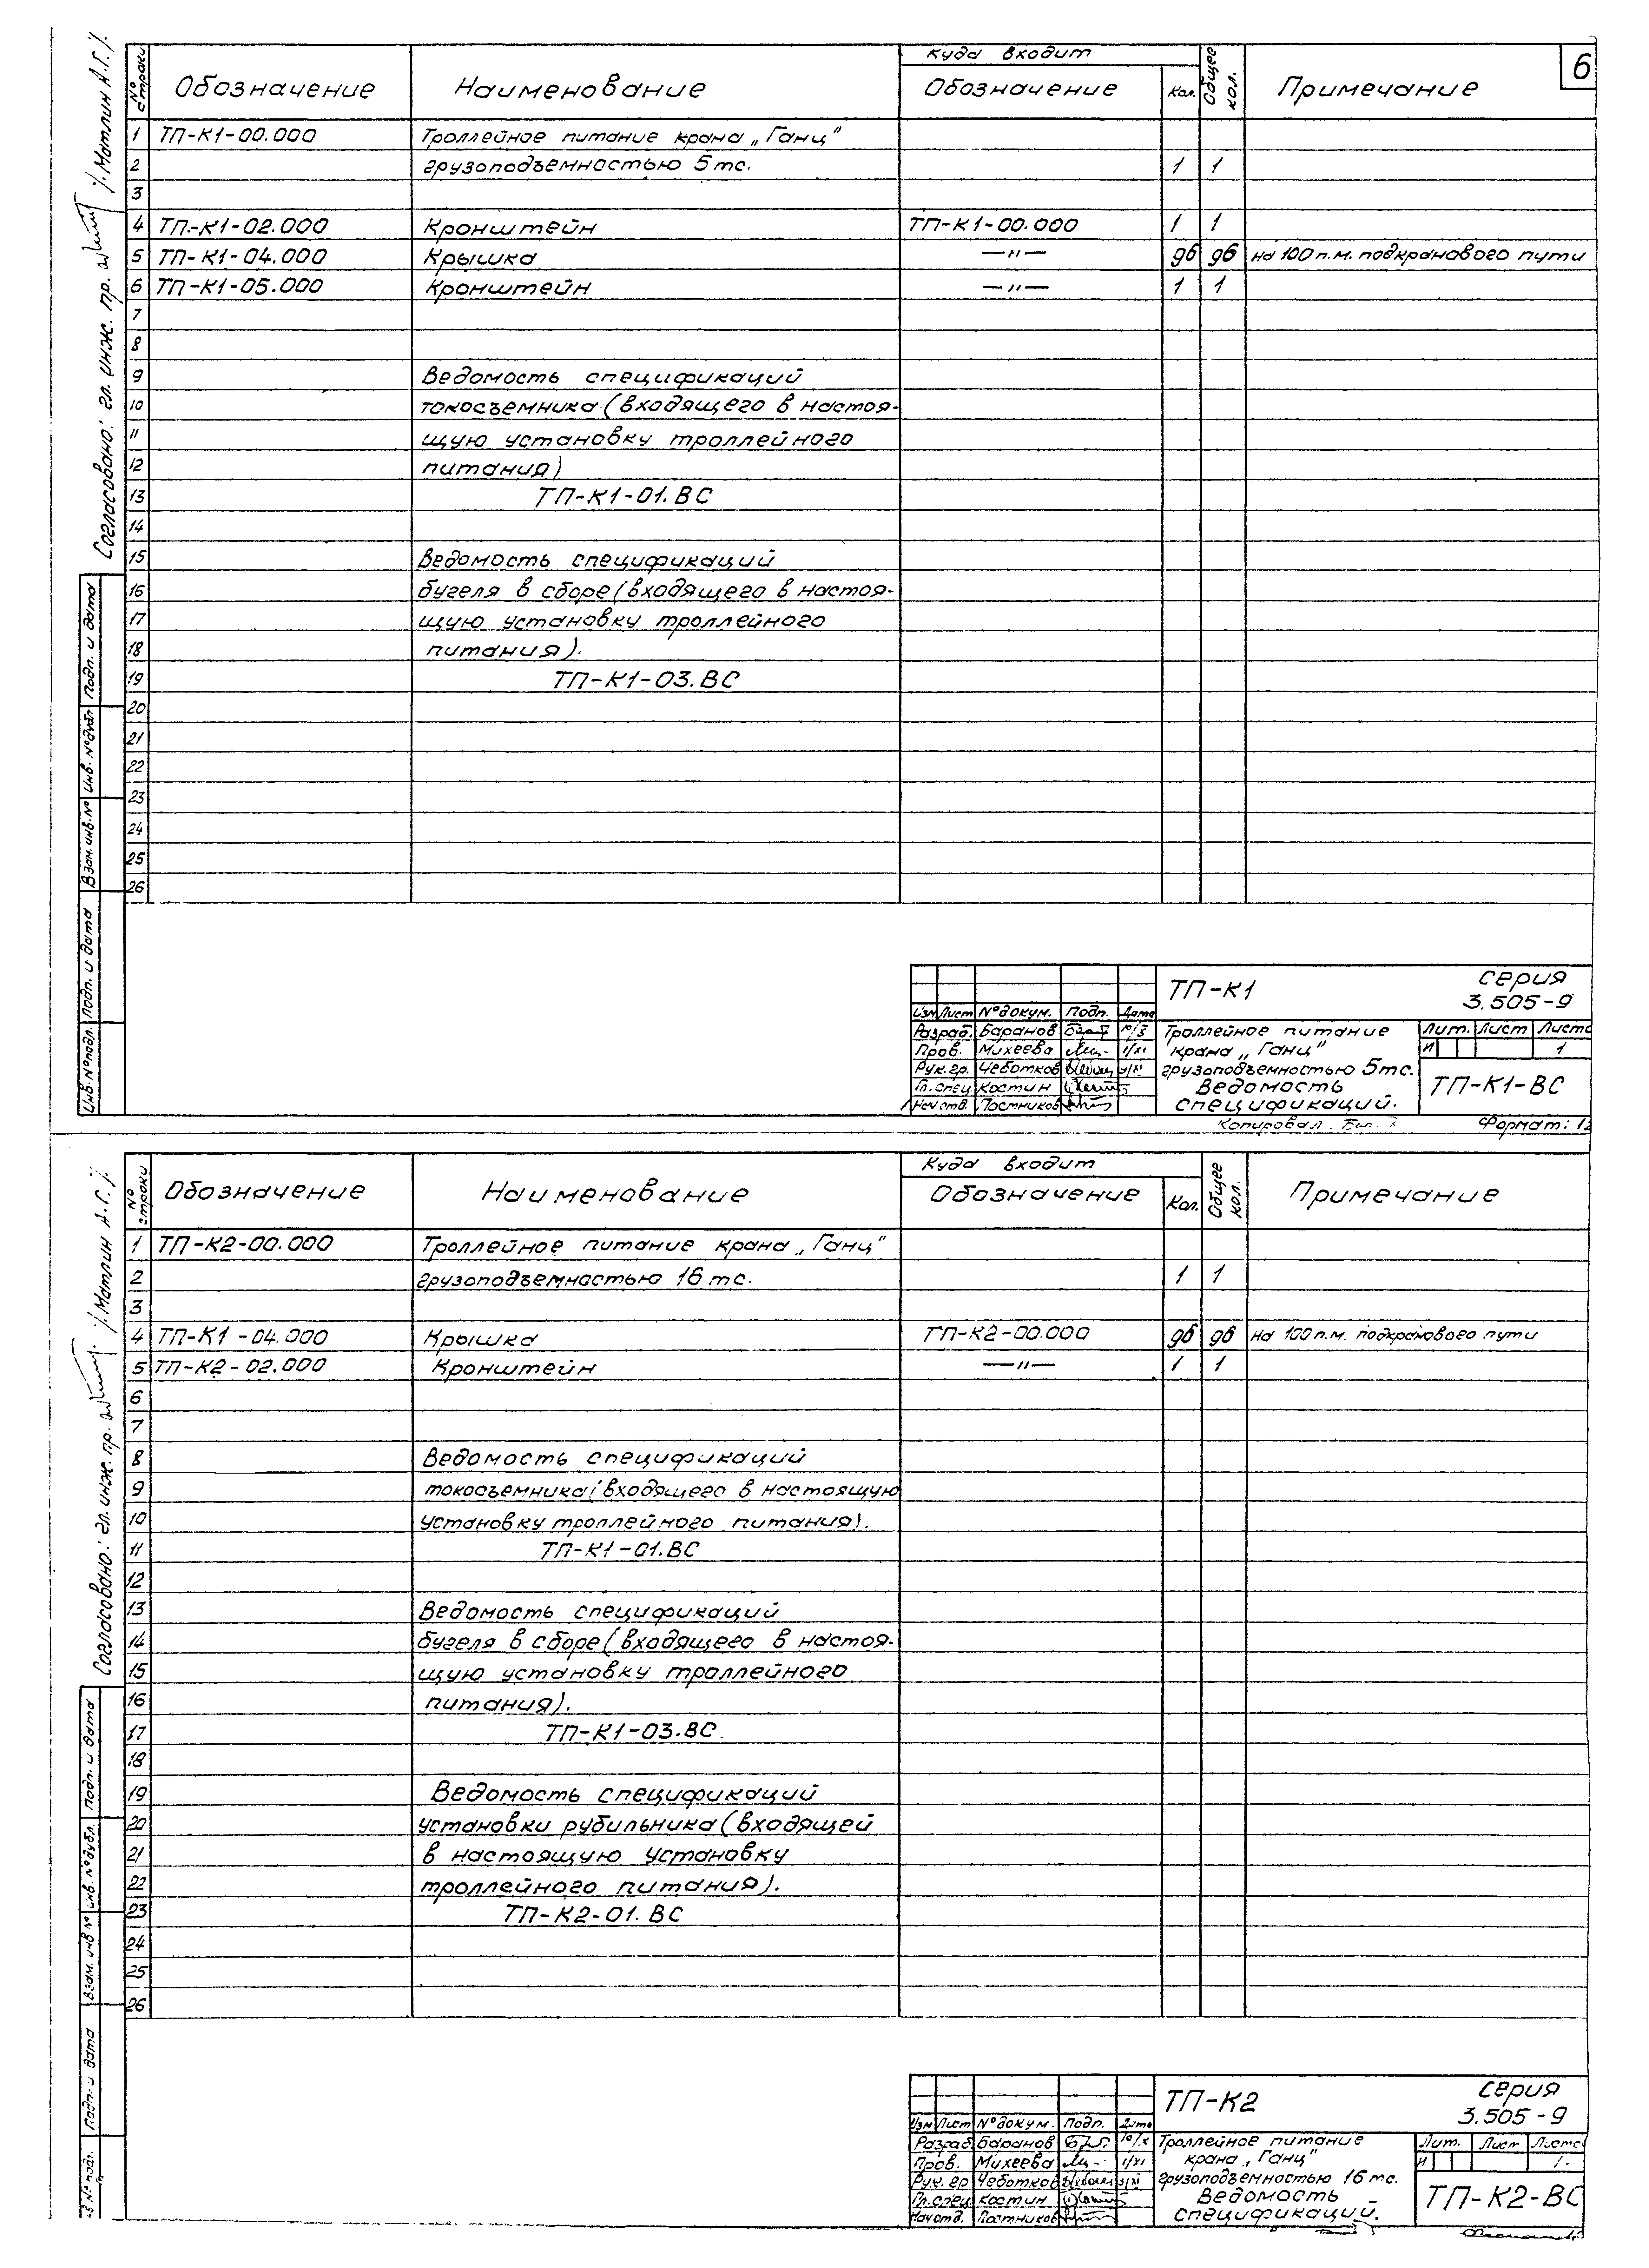 6
№ строки Обозначение Наименование Куда входит Обозначение Кол. Общее кол. Примечание
1 ТП-К1-00.000 Троллейное питание крана „Ганц"
2 грузоподъемностью 5тс. 1 1
3
4 ТП-К1-02.000 Кронштейн ТП-К1-00.000 1 1
5 ТП-К1-04.000 Крышка —"— 96 96 на 100 п.м. подкранового пути
6 ТП-К1-05.000 Кронштейн —"— 1 1
7
8
9 Ведомость спецификаций
10 токосъемника (входящего в настоя-
11 щую установку троллейного
12 питания)
13 ТП-К1-01.ВС
14
15 Ведомость спецификаций
16 бугеля в сборе (входящего в настоя-
17 щую установку троллейного
18 питания).
19 ТП-К1-03.ВС
20
21
22
23
24
25
26
Согласовано: гл. инж. пр. /Матлин А.Г./
Инв.№подл. Подп. и дата Взам. инв. № Инв. № дубл. Подп. и дата
ТП-К1 серия
3.505-9
Изм Лист № докум. Подп. Дата
Разраб. Баранов
Пров. Михеева
Рук.гр. Чеботков
Гл.спец. Костин
Нач.отд. Постников
Троллейное питание
крана „Ганц"
грузоподъемностью 5тс.
Ведомость
спецификаций.
Лит. Лист Листо
И 1
ТП-К1-ВС
Копировал Формат: 12
№ строки Обозначение Наименование Куда входит Обозначение Кол. Общее кол. Примечание
1 ТП-К2-00.000 Троллейное питание крана „Ганц"
2 грузоподъемностью 16тс. 1 1
3
4 ТП-К1-04.000 Крышка ТП-К2-00.000 96 96 на 100 п.м. подкранового пути
5 ТП-К2-02.000 Кронштейн —"— 1 1
6
7
8 Ведомость спецификаций
9 токосъемника (входящего в настоящую
10 установку троллейного питания).
11 ТП-К1-01.ВС
12
13 Ведомость спецификаций
14 бугеля в сборе (входящего в настоя-
15 щую установку троллейного
16 питания).
17 ТП-К1-03.ВС
18
19 Ведомость спецификаций
20 установки рубильника (входящей
21 в настоящую установку
22 троллейного питания).
23 ТП-К2-01.ВС
24
25
26
Согласовано: гл. инж. пр. /Матлин А.Г./
№ подл. Подп. и дата Взам. инв № Инв. № дубл. Подп. и дата
ТП-К2 серия
3.505-9
Изм Лист № докум. Подп. Дата
Разраб Баранов
Пров. Михеева
Рук.гр Чеботков
Гл.спец. Костин
Нач.отд. Постников
Троллейное питание
крана „Ганц"
грузоподъемностью 16тс.
Ведомость
спецификаций.
Лит. Лист Листо
И 1
ТП-К2-ВС